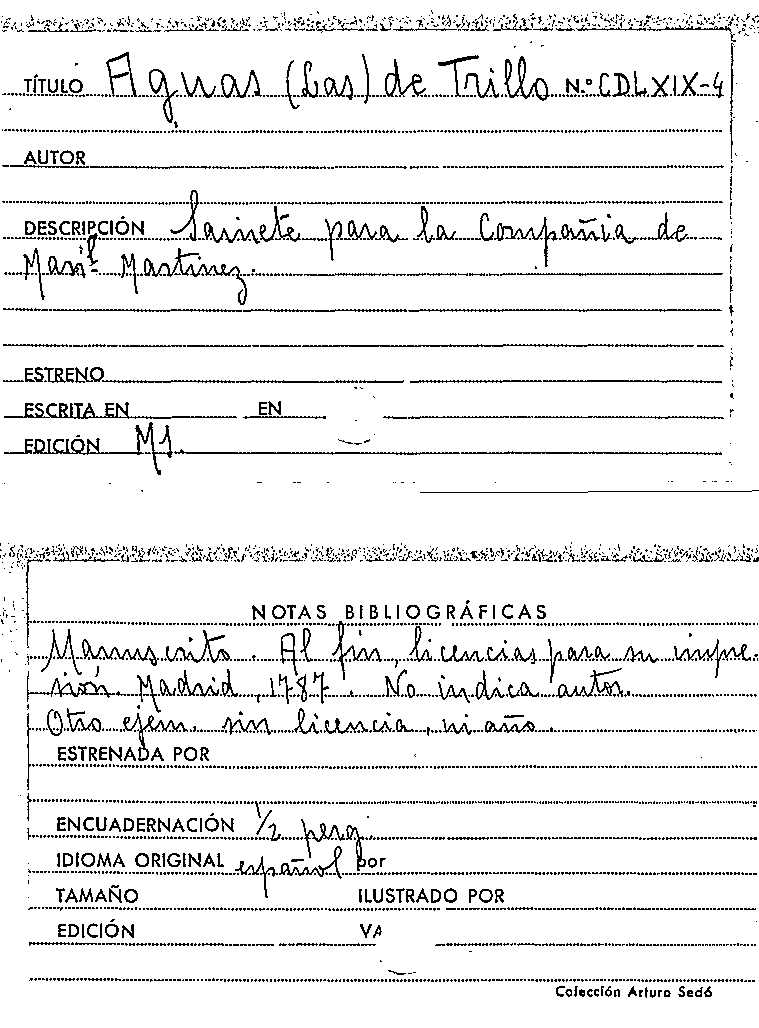 TÍTULO Aguas (Las) de Trillo N.º CDLXIX-4
AUTOR
DESCRIPCIÓN Sainete para la Compañia de
Man.l Martinez.
ESTRENO
ESCRITA EN EN
EDICIÓN Ms.
NOTAS BIBLIOGRÁFICAS
Manuscrito. Al fin, licencias para su impre-
sión. Madrid, 1787. No indica autor.
Otro ejem. sin licencia, ni año.
ESTRENADA POR
ENCUADERNACIÓN 1/2 perg.
IDIOMA ORIGINAL español por
TAMAÑO ILUSTRADO POR
EDICIÓN
Colección Arturo Sedó